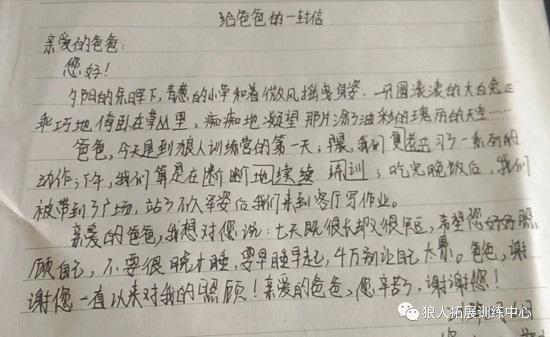 给爸爸的一封信
亲爱的爸爸:
您好!
夕阳的余晖下,青葱的小草和着微风摇曳身姿.一只圆滚滚的大白兔正
乖巧地倚卧在草丛里,痴痴地凝望那片涂了油彩的瑰丽的天空……
爸爸,今天是到狼人训练营的第一天;早晨,我们复习了一系列的
动作;下午,我们算是在断断地续续训;吃完晚饭后,我们
被带到了广场,站了军姿后我们来到客厅写作业。
亲爱的爸爸,我想对您说:七天既很长却又很短,希望您好好照
顾自己,不要很晚才睡,要早睡早起,千万别让自己太累。爸爸,谢
谢您一直以来对我的照顾!亲爱的爸爸,您辛苦了,谢谢您!
狼人拓展训练中心